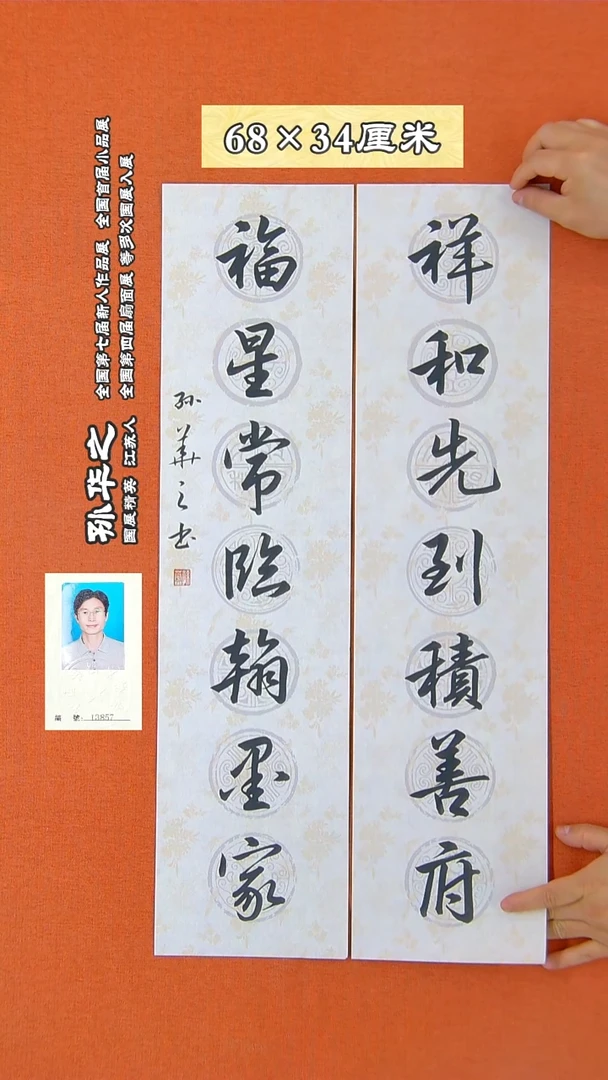 68×34厘米
祥和先到積善府
福星常臨翰墨家
孙華之书
孙华之
国展精英 江苏人
全国第七届新人作品展 全国首届小品展
全国第四届扇面展 等多次国展入展
编 號: 13857